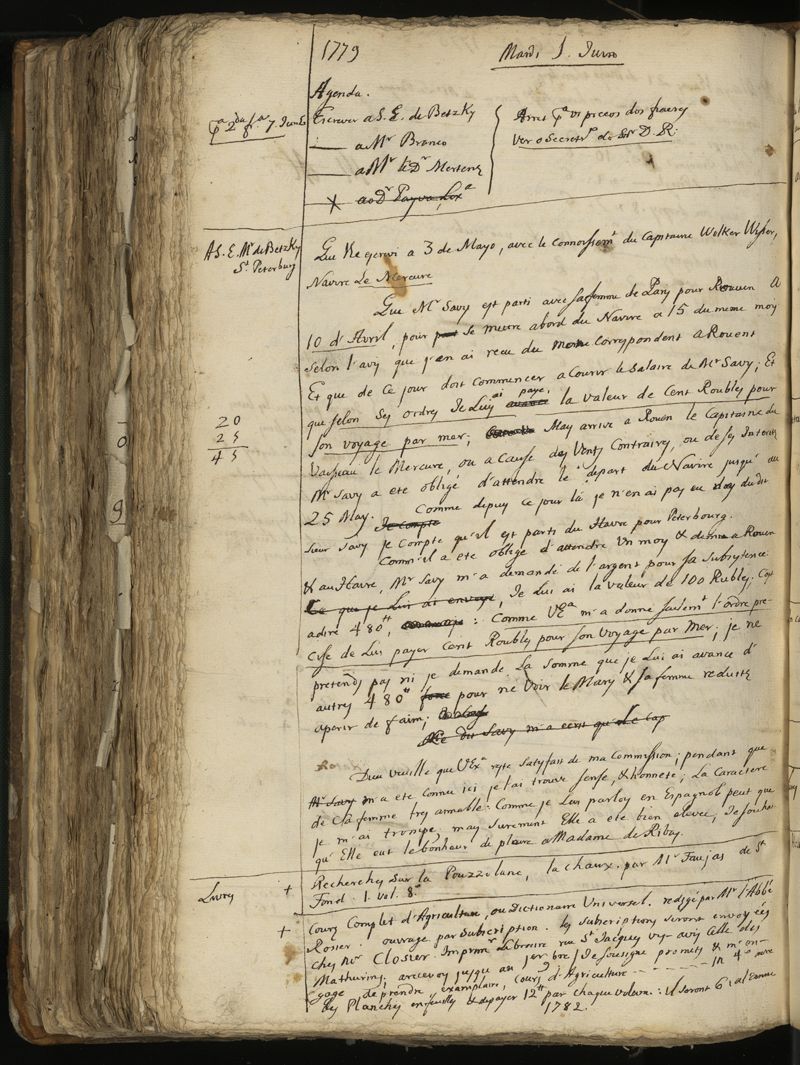 1779 Mardi 1. Juin
Agenda.
pa 2da fa 7. Junho
Escrever a S. E. de Betzky
a Mr Branco
a Mr le Dr Mertens
X a o Dr Payva,
Arret pa os preços dos
Ver o Secretrio do Snr D. R.
A S. E. Mr de Betzky
St Peterburg
Que le ecrivi a 3 de Mayo, avec le connoissemt du Capitaine Wolker Wyser,
Navire Le Mercure
Que Mr Savy est parti avec sa femme de Pary pour Rouen a
10 d'Avril, pour se mettre abord du Navire a 15 du meme moy
selon l'avy que j'en ai receu du meme correspondent a Rouent
Et que de ce jour doit commencer a courir le salaire de Mr Savy; Et
que selon ses ordres Je luy ai payé la valeur de Cent Roubles pour
son voyage par mer; May arrive a Rouen le Capitaine du
Vaisseau le Mercure, ou a cause des Vents Contraires, ou de ses Interets
Mr Savy a eté obligé d'attendre le depart du Navire jusqu' au
25 May. Je compte Comme depuy ce jour là je n'en ai pas eu du dit
sieur Savy je compte qu'il est parti du Havre pour Peterbourg.
20
25
45
Comm'il a eté obligé d'attendre un moy & demi a Rouen
& au Havre, Mr Savy m'a demandé de l'argent pour sa subsystence
Ce que je luis ai envoyé, Je lui ai la valeur de 100 Rubles; Cest
adire 480tt, : Comme VEa m'a donné seulemt l'ordre pre-
cise de luis payer Cent Roubles pour son voyage par Mer; je ne
pretends pas ni je demande la somme que je lui ai avancé d'
autres 480tt pour ne voir le Mary & sa femme reduits
a perir de faim;
dit Savy m'a ecrit qu'il
Dieu veuille que VExa ryte satysfait de ma Commission; pendant que
Mr Savy m'a eté connu ici je l'ai trouvé sensé, & honneté; la Caractere
de sa femme tres aimable: Comme je luis parloy en Espagnol peut que
je m'ai trompé, may surement Elle a eté bien elevée, Je souhai
qu'Elle eut le bonheur de plaire a Madame de Ribas.
Livres
+ Recherches sur la Pouzzolane, la chaux. par Mr Faujas de St
Fond. 1. vol. 8o
+ Cours Complet d'Agriculture, ou Dictionaire Universel. redigé par Mr l'Abbé
Rosier. ouvrage par subscription. les subscriptions seront envoyées
chez Mr Closier. Imprimr Libraire rue St Jacques vis avis Celle des
Mathurins, a recevoir jusqu au 1er bre; Je soussigne promets & m'en-
gage de prendre exemplaire, Cours d'Agriculture in 4o avec
des Planches & de payer 12tt par chaque volum.: il seront 6
1782.